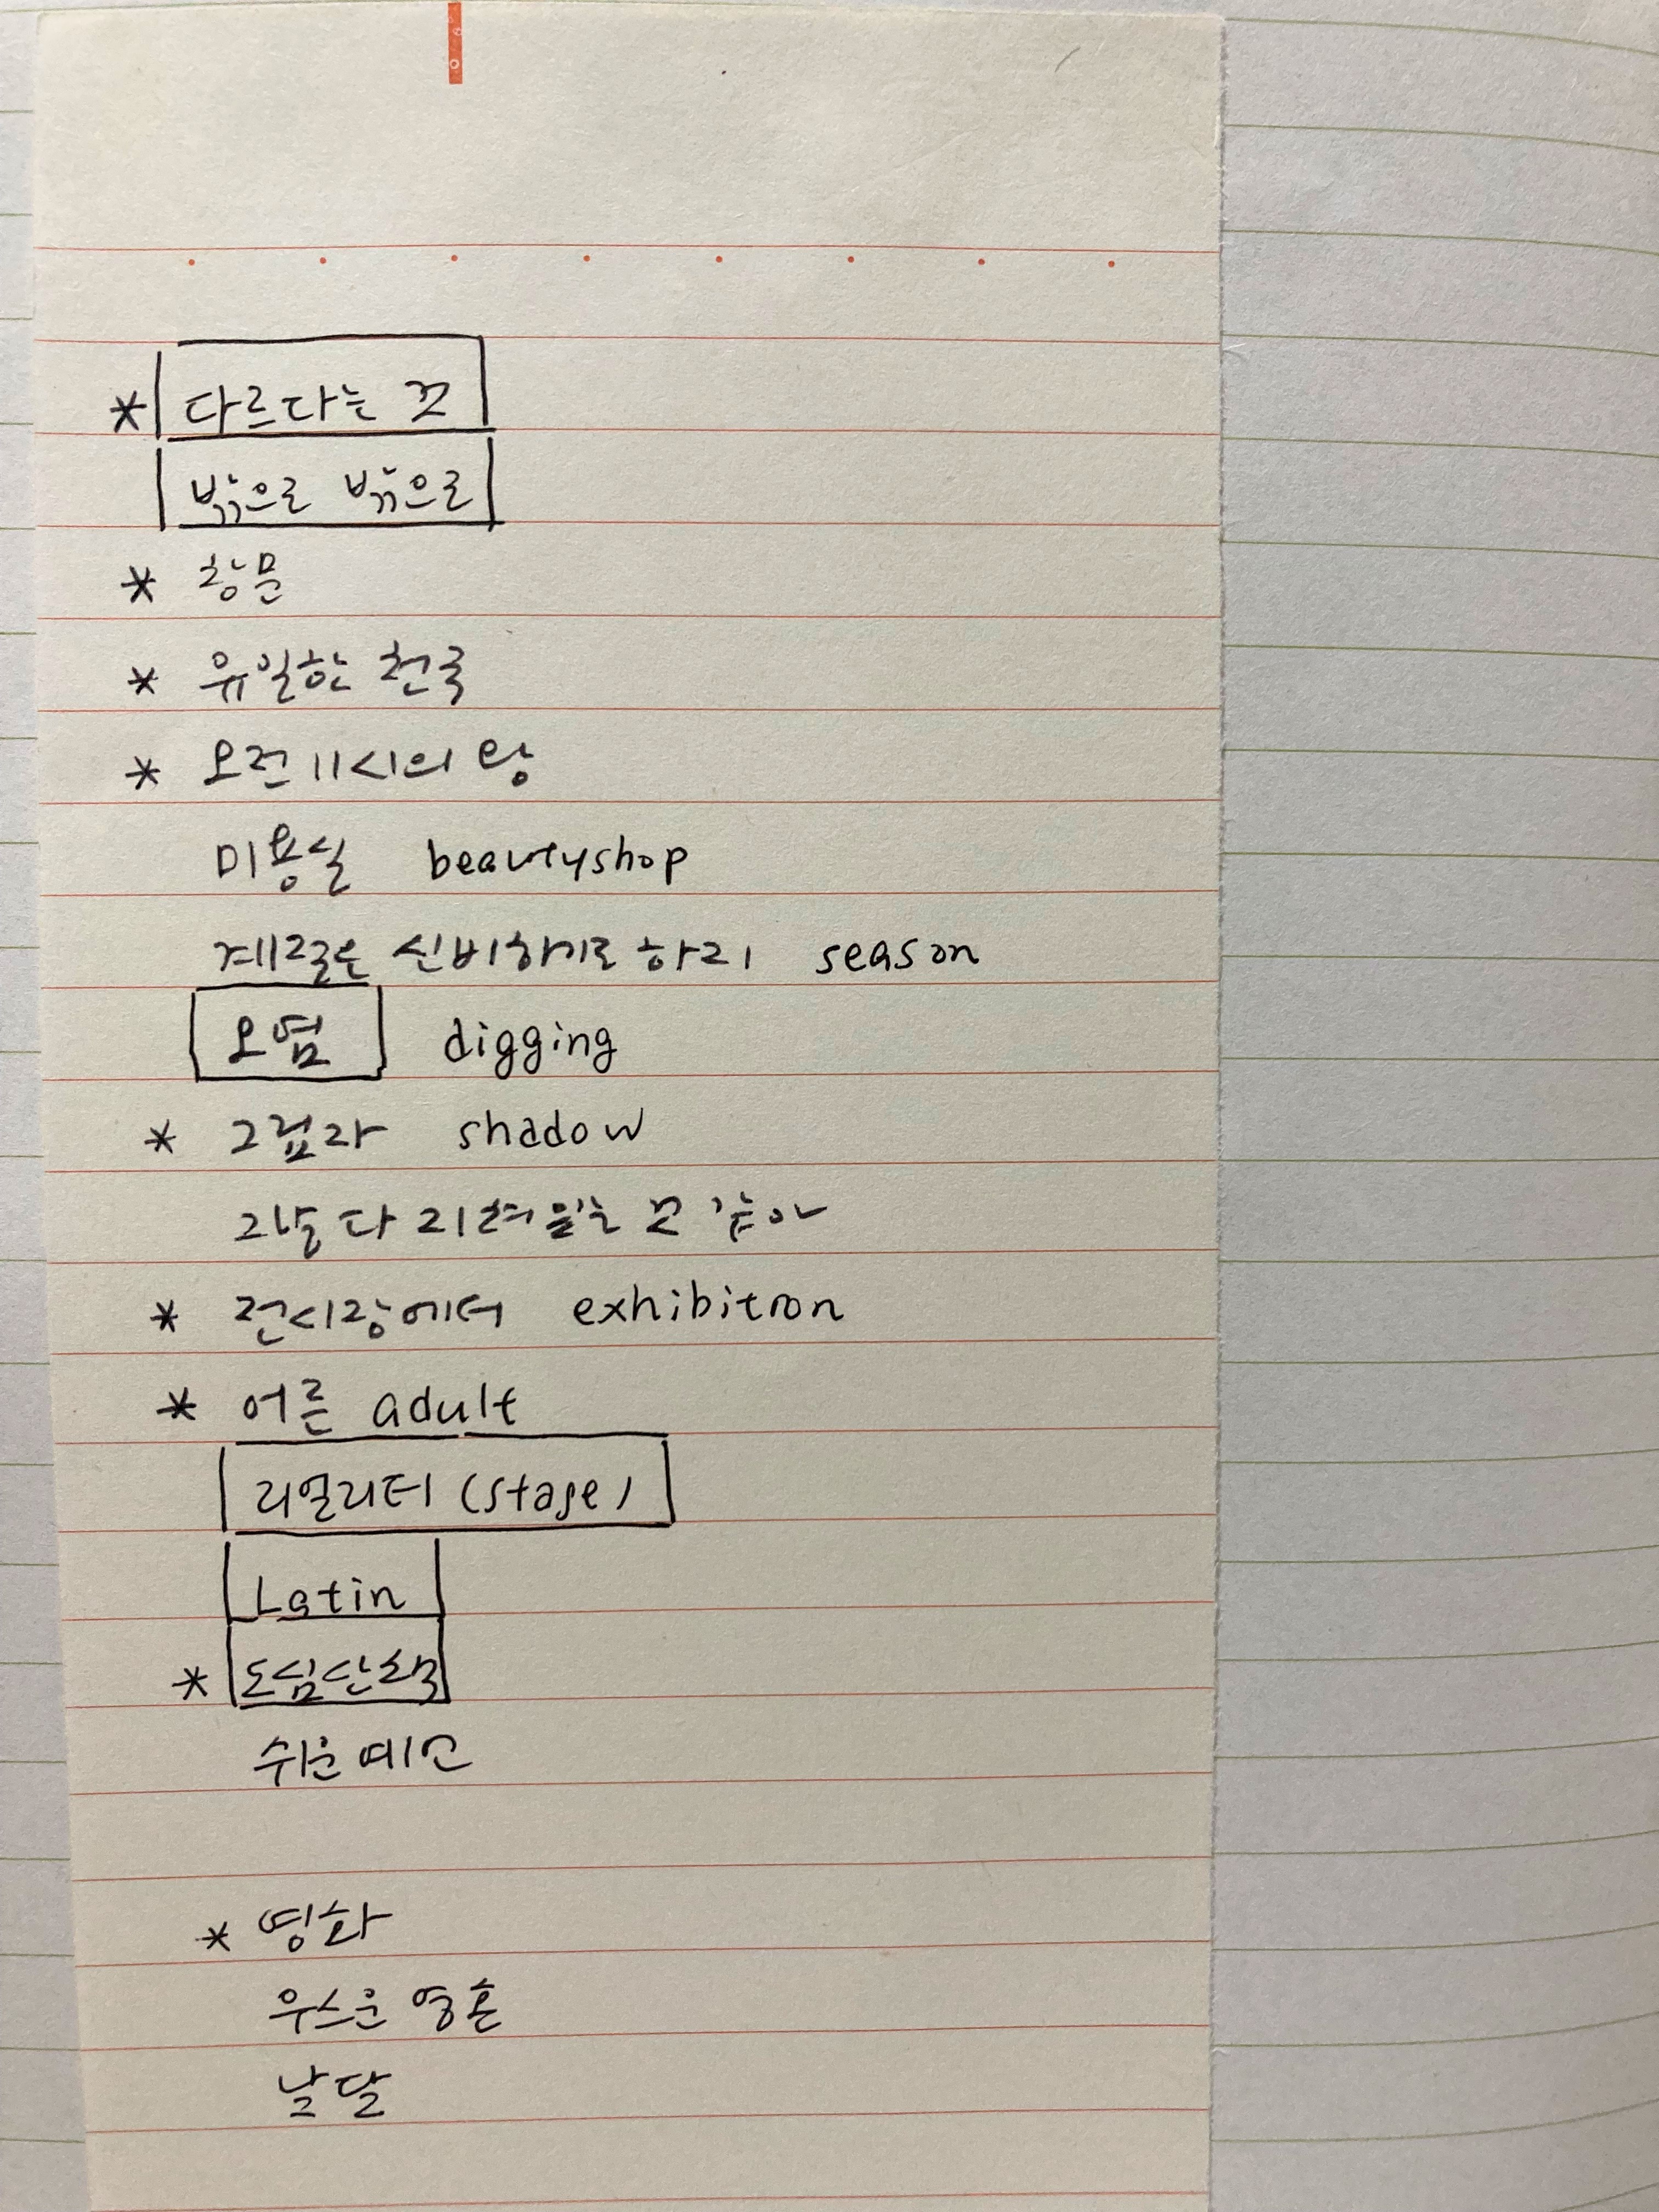 * 다르다는 것
밖으로 밖으로
* 창문
* 유일한 천국
* 오전 11시의 랑
미용실 beautyshop
계절은 신비하기로 하지 season
오염 digging
* 그림자 shadow
다
* 전시장에서 exhibition
* 어른 adult
리얼리티 (stage)
Latin
* 도심산책
쉬운 예고
* 영화
우스운 영혼
낮달